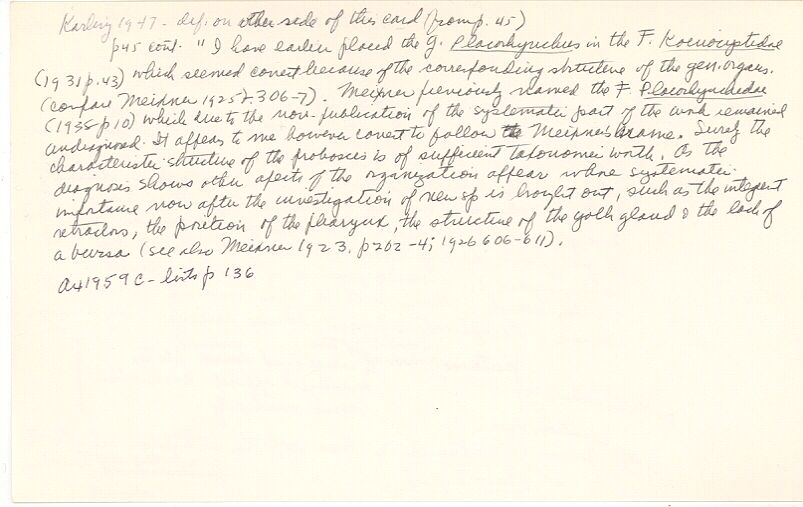 Karling 1947 - def. on other side of this card (from p. 45)
p45 cont. "I have earlier placed the g. Placorhynchus in the F. Koinocystidae
(1931 p. 43) which seemed correct because of the corresponding structure of the gen. organs.
(compare Meixner 1925 p. 306-7). Meixner previously named the F. Placorhynchidae
(1938 p 10) which due to the non-publication of the systematic part of the work remained
undiagnosed. It appears to me however correct to follow Meixner's name. Surely the
characteristic structure of the proboscis is of sufficient taxonomic worth. As the
diagnosis shows other apects of the organization appear whose systematic
importance now after the investigation of new sp is brought out, such as the integument
retractors, the position of the pharynx, the structure of the yolk gland & the lack of
a bursa (see also Meixner 1923, p 202-4; 1926 606-611).
Ax 1959 C - lists p 136